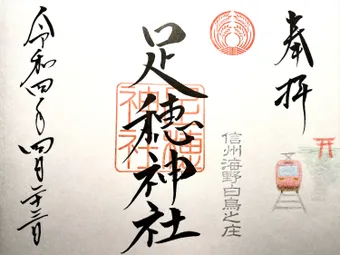 奉拝
信州海野白鳥之庄
足穂神社
足穂神社
令和四年四月二十三日